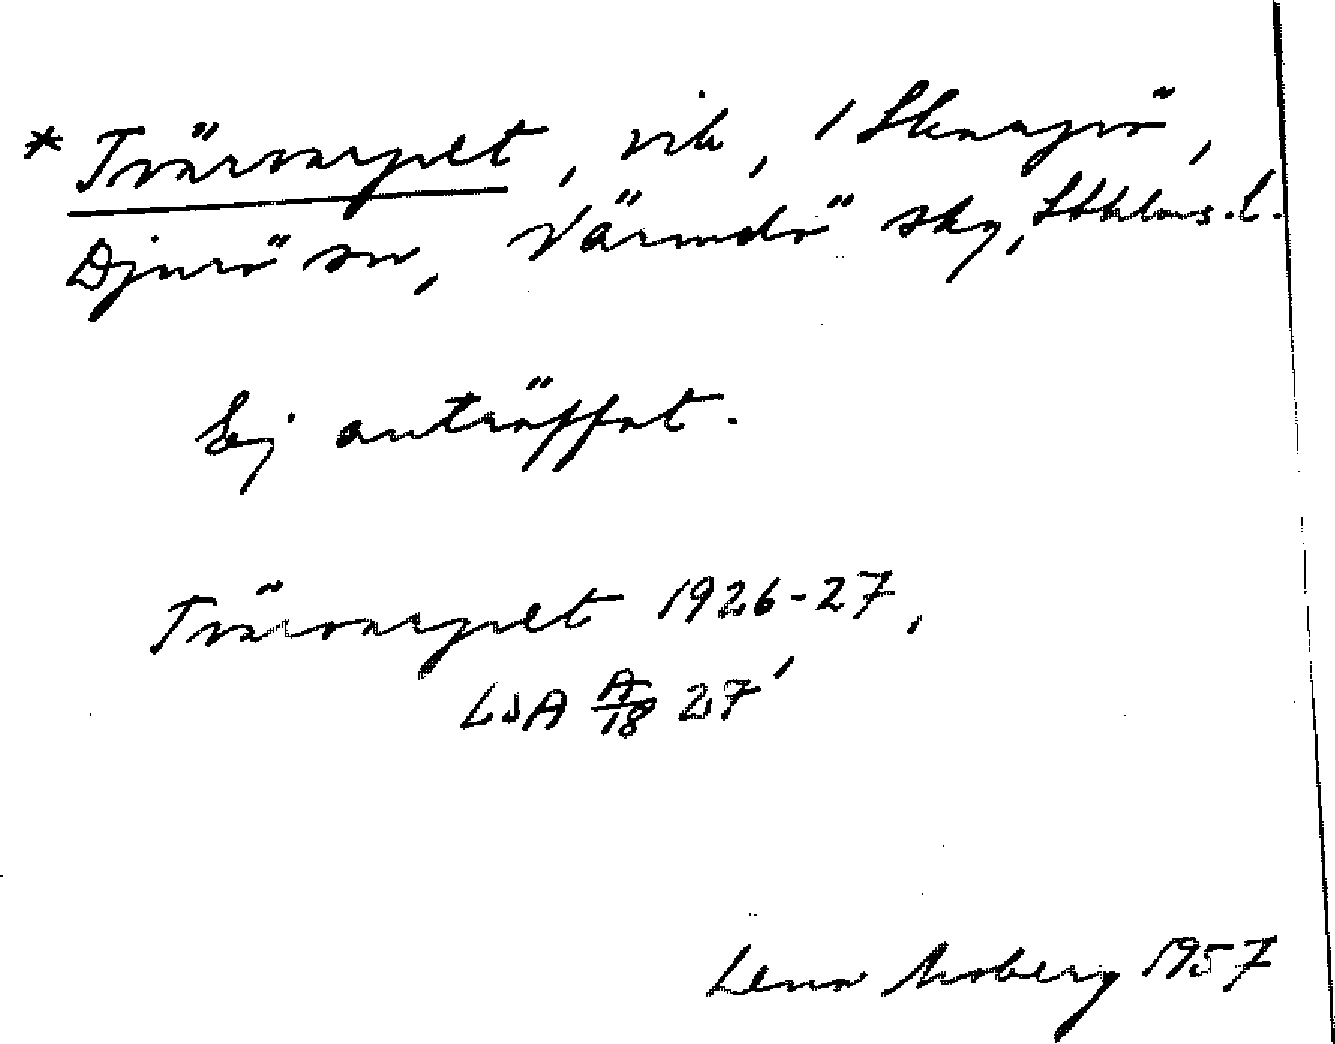 * Tvärvarpet, vik, 1 Skarprö,
Djurö sn, Värmdö skg, Sthlms. l.
Ej anträffat.
Tvärvarpet 1926-27,
LSA A/18 27
Lena Moberg 1957